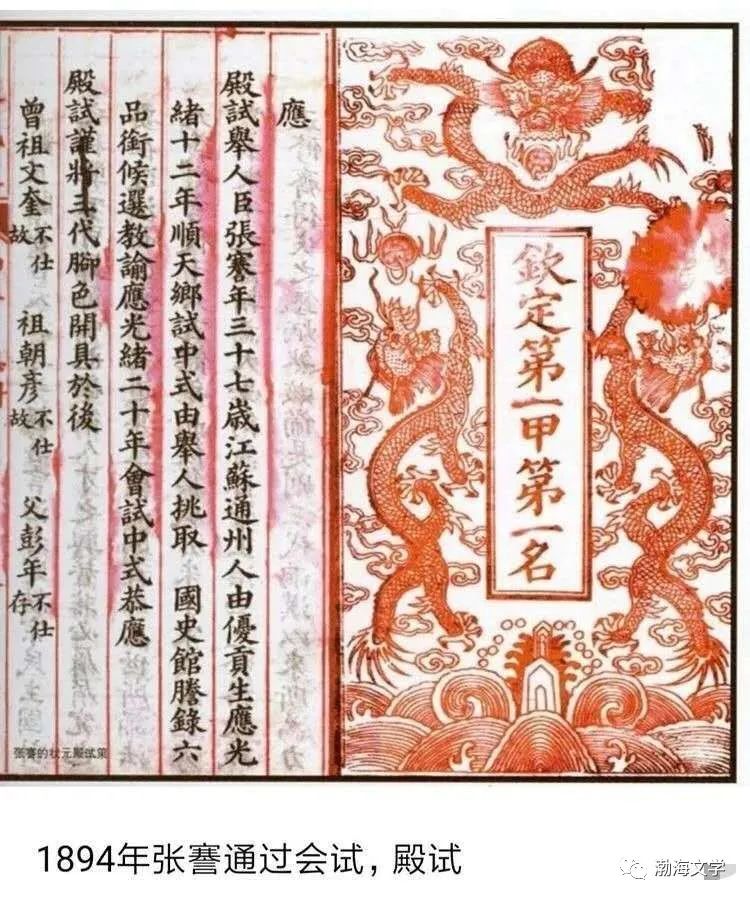 欽定第一甲第一名
應
殿試舉人臣張謇年三十七歲江蘇通州人由優貢生應光
緒十二年順天鄉試中式由舉人挑取 國史館謄錄六
品銜候選教諭應光緒二十年會試中式恭應
殿試謹將三代腳色開具於後
曾祖文奎不仕故 祖朝彥不仕故 父彭年不仕存
张謇的状元殿试策
1894年张謇通过会试，殿试
渤海文学